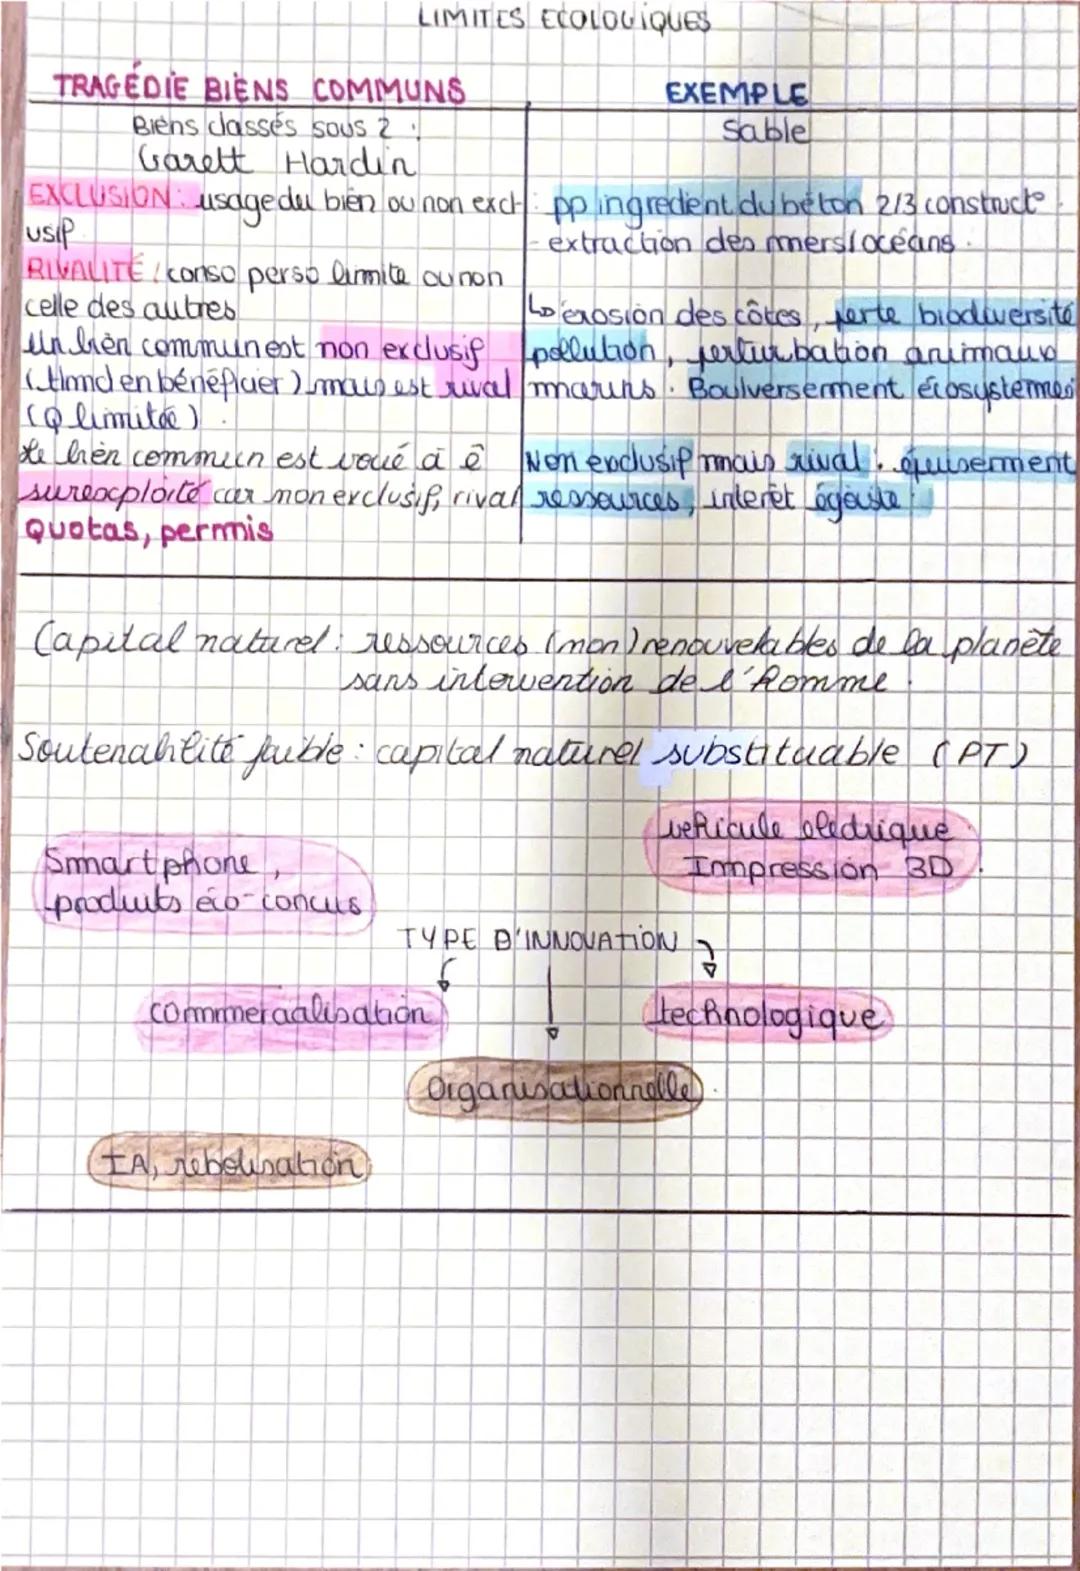 LIMITES ECOLOGIQUES
TRAGÉDIE BIENS COMMUNS
Biens classés sous 2 :
Garett Hardin
EXCLUSION : usage du bien ou non excl
usif
RIVALITÉ : conso perso limite ou non
celle des autres
Un bien commun est non exclusif
(tlmd en bénéficier) mais est rival
(Q limitée).
Le bien commun est voué à ê
surexploité car non exclusif, rival
Quotas, permis
EXEMPLE
Sable
- pp ingredient du béton 2/3 construct°.
- extraction des mers/océans.
↳ érosion des côtes, perte biodiversité
pollution, perturbation animaux
marins. Boulversement écosystemes
Non exclusif mais rival : épuisement
ressources, interêt égoïste.
Capital naturel : ressources (non) renouvelables de la planète
sans intervention de l'homme.
Soutenabilité faible : capital naturel substituable (PT)
vehicule electrique
Impression 3D
Smartphone,
produits éco-concus
TYPE D'INNOVATION
commercialisation
technologique
Organisationnelle
IA, rebolisation